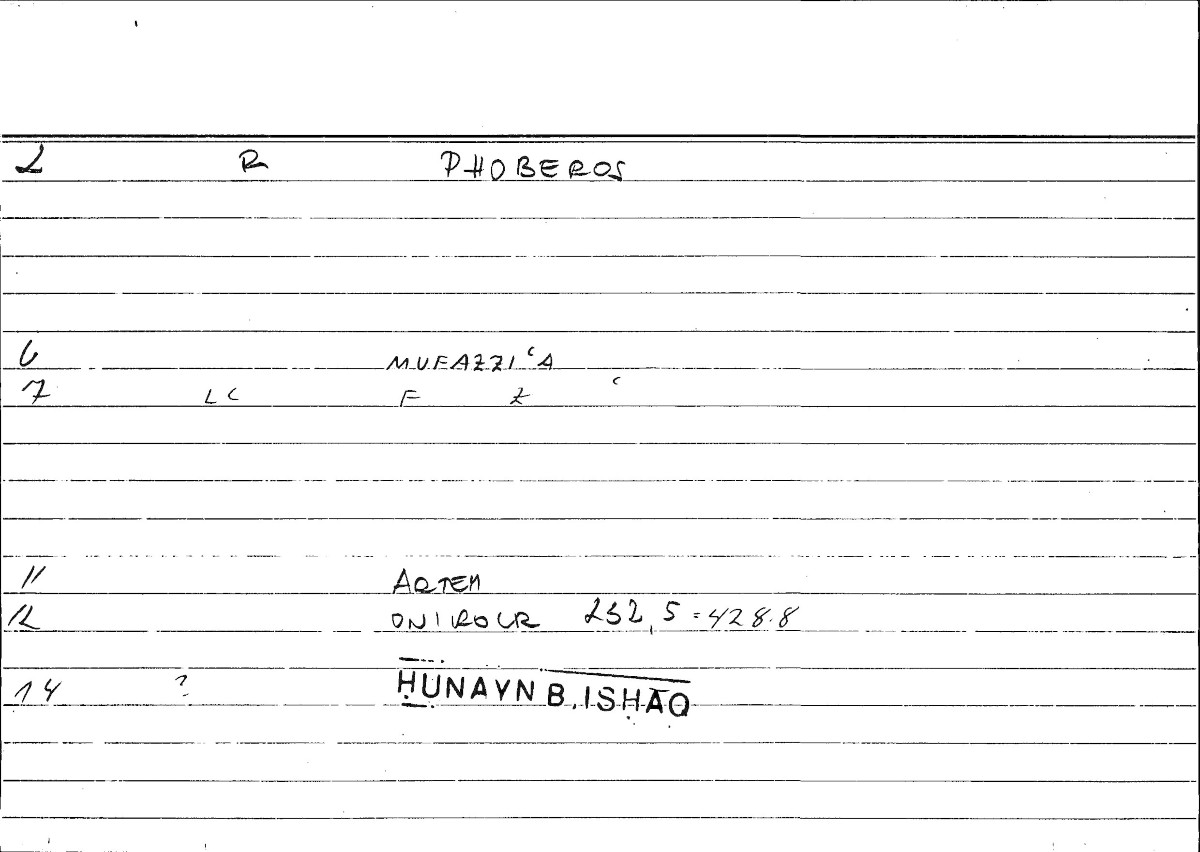 2 R PHOBEROS
6 MUFAZZI‘A
7 LC F Z ‘
11 ARTEM
12 ONIROCR 232,5=428.8
14 ? ḤUNAYN B. ISḤĀQ